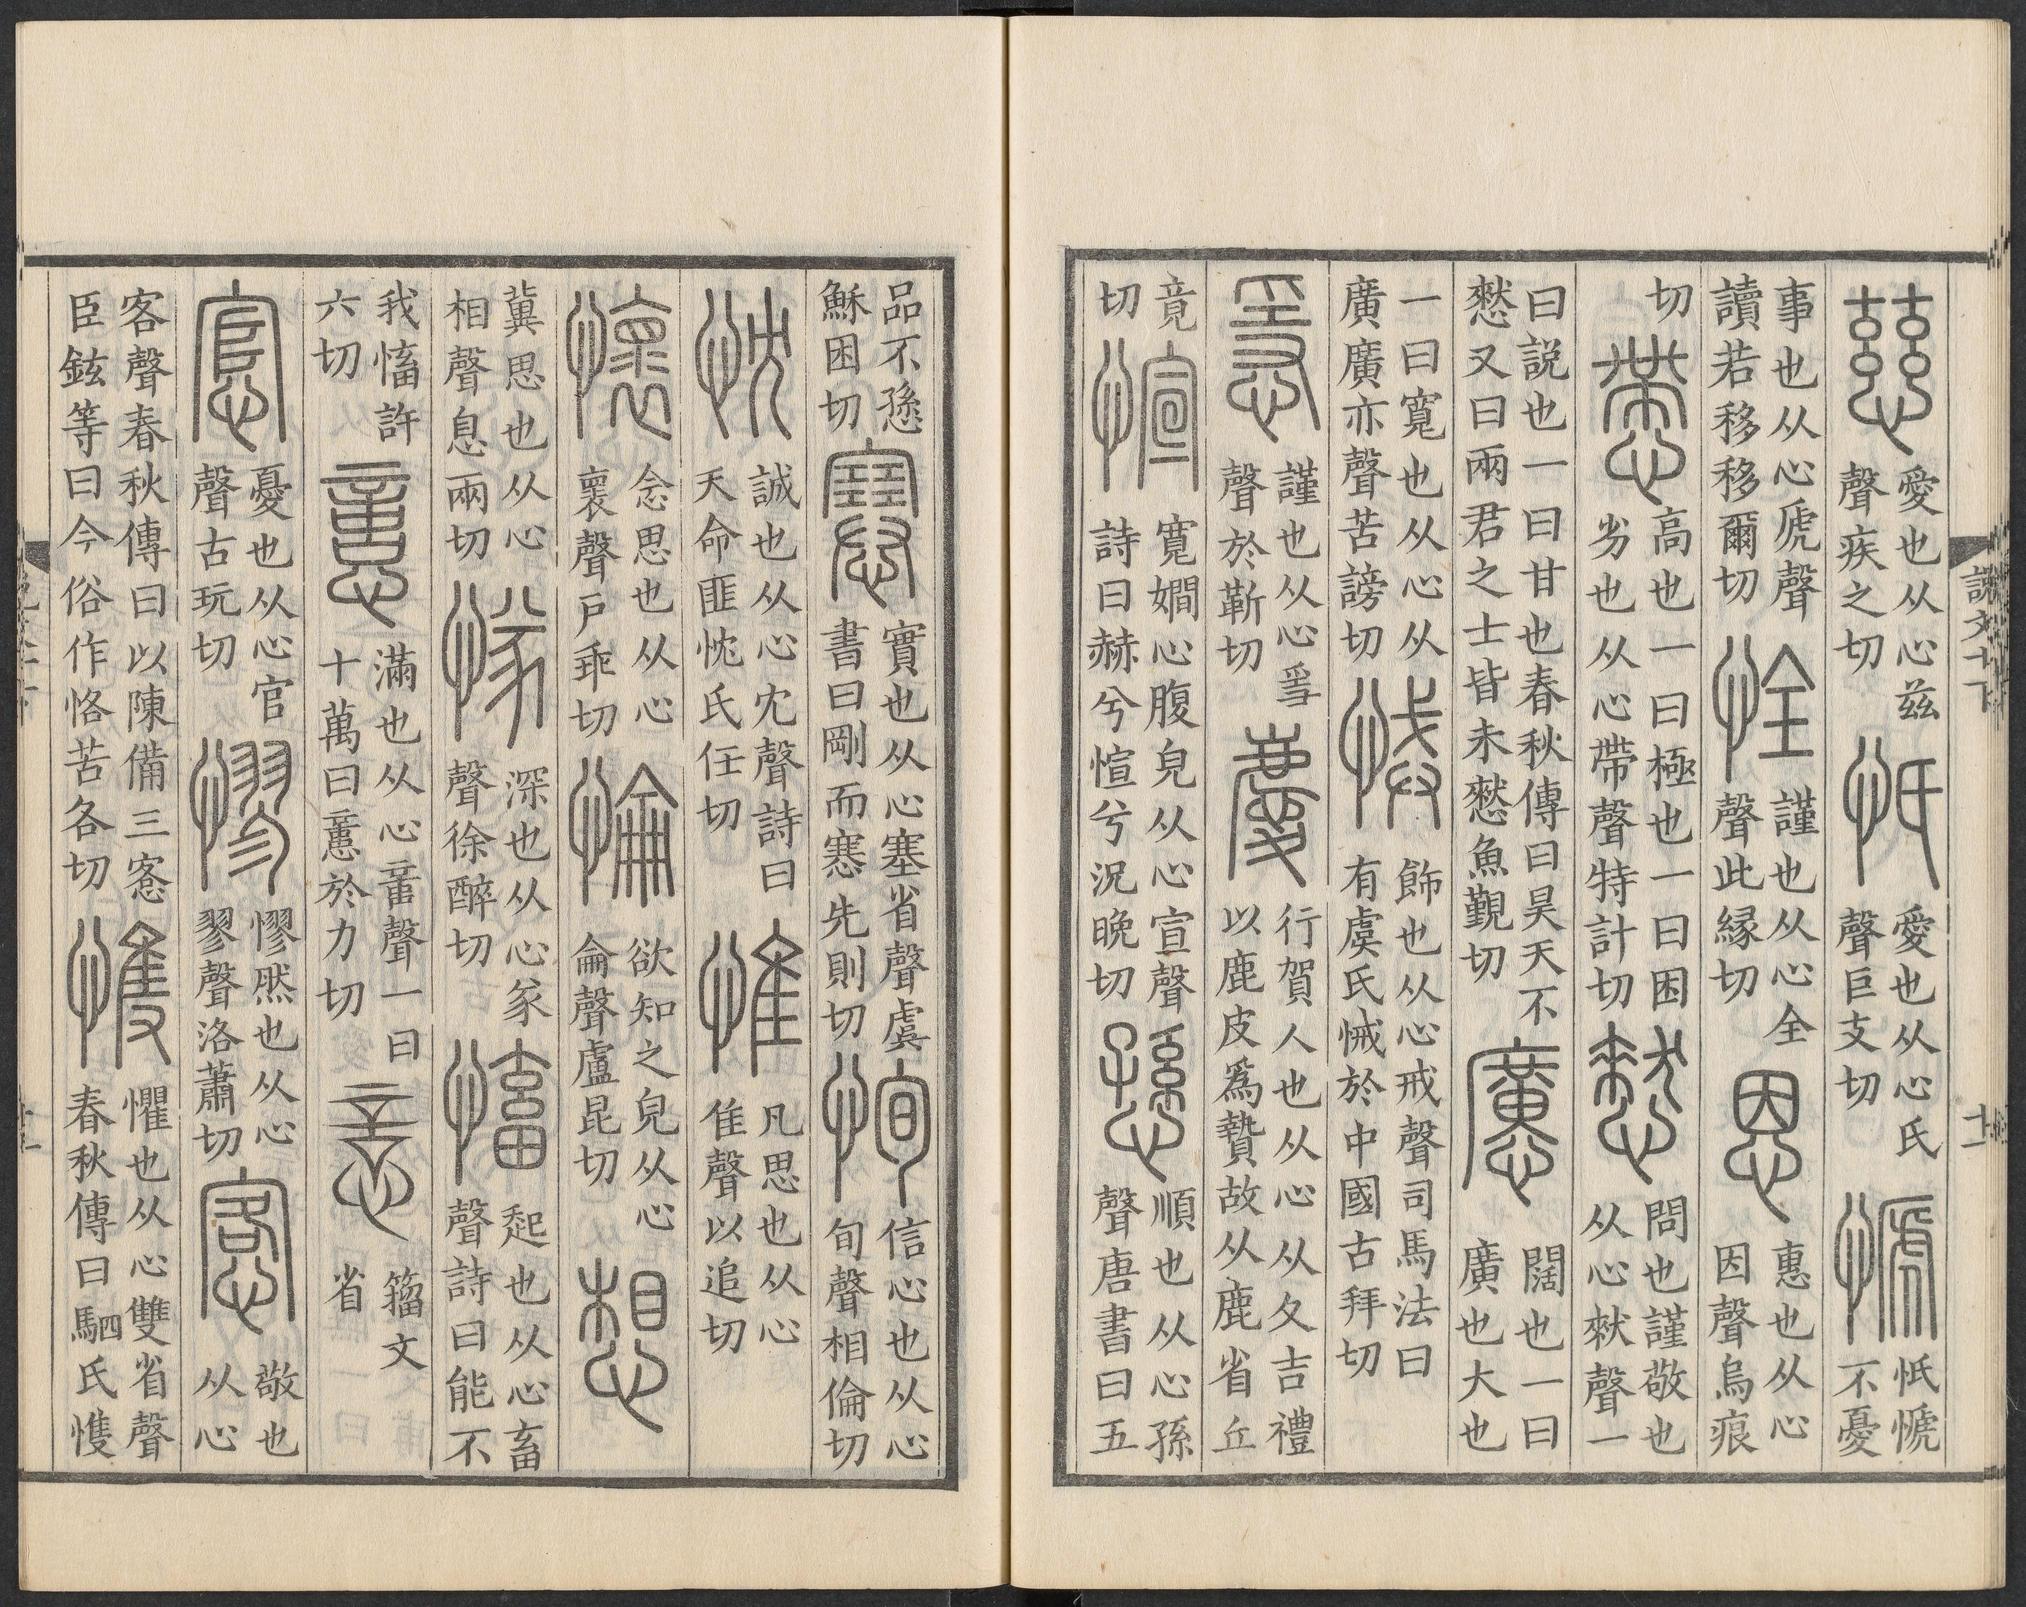 說文十下
十一
慈
愛也从心兹
聲疾之切
忯
愛也从心氏
聲巨支切
㥴
忯㥴
不憂
事也从心虒聲
讀若移移爾切
恮
謹也从心全
聲此緣切
恩
惠也从心
因聲烏痕
切
㦅
高也一曰極也一曰困
劣也从心帶聲特計切
憖
問也謹敬也
从心猌聲一
曰説也一曰甘也春秋傳曰昊天不
憖又曰兩君之士皆未憖魚覲切
懬
闊也一曰
廣也大也
一曰寬也从心从
廣廣亦聲苦謗切
悈
飾也从心戒聲司馬法曰
有虞氏悈於中國古拜切
㥯
謹也从心𤔌
聲於靳切
慶
行賀人也从心从夂吉禮
以鹿皮爲贄故从鹿省丘
竟
切
愃
寬嫺心腹皃从心宣聲
詩曰赫兮愃兮況晚切
愻
順也从心孫
聲唐書曰五
品不愻
穌困切
𡫳
實也从心塞省聲虞
書曰剛而𡫳先則切
恂
信心也从心
旬聲相倫切
忱
誠也从心冘聲詩曰
天命匪忱氏任切
惟
凡思也从心
隹聲以追切
懷
念思也从心
褱聲戶乖切
惀
欲知之皃从心
侖聲盧昆切
想
冀思也从心
相聲息兩切
㥞
深也从心㒸
聲徐醉切
慉
起也从心畜
聲詩曰能不
我慉許
六切
意
滿也从心䇂聲一曰
十萬曰意於力切
籀文
省
悹
憂也从心官
聲古玩切
憀
憀然也从心
翏聲洛蕭切
愙
敬也
从心
客聲春秋傳曰以陳備三愙
臣鉉等曰今俗作恪苦各切
愯
懼也从心雙省聲
春秋傳曰駟氏愯